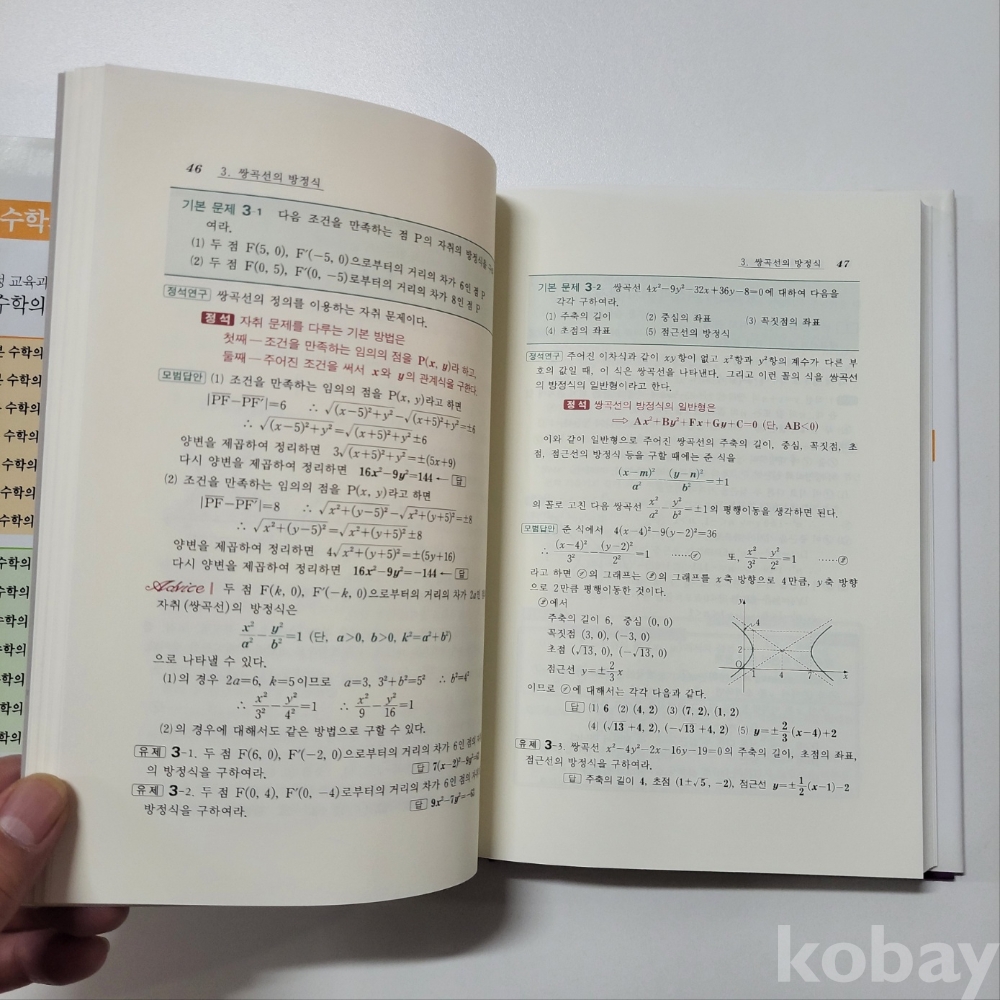 수학의
정 교육과
수학의
본 수학의
본 수학의
수학의
수학의
수학의
수학의
수학의
수학의
수학의
수학의
수학의
수학의
수학의
46 3. 쌍곡선의 방정식
기본 문제 3-1 다음 조건을 만족하는 점 P의 자취의 방정식을
여라.
(1) 두 점 F(5, 0), F′(−5, 0)으로부터의 거리의 차가 6인 점 P
(2) 두 점 F(0, 5), F′(0, −5)로부터의 거리의 차가 8인 점 P
정석연구 쌍곡선의 정의를 이용하는 자취 문제이다.
정석 자취 문제를 다루는 기본 방법은
첫째─조건을 만족하는 임의의 점을 P(x, y)라 하고,
둘째─주어진 조건을 써서 x와 y의 관계식을 구한다.
모범답안 (1) 조건을 만족하는 임의의 점을 P(x, y)라고 하면
|PF−PF′|=6 ∴ √(x−5)²+y²−√(x+5)²+y²=±6
∴ √(x−5)²+y²=√(x+5)²+y²±6
양변을 제곱하여 정리하면 3√(x+5)²+y²=±(5x+9)
다시 양변을 제곱하여 정리하면 16x²−9y²=144 ← 답
(2) 조건을 만족하는 임의의 점을 P(x, y)라고 하면
|PF−PF′|=8 ∴ √x²+(y−5)²−√x²+(y+5)²=±8
∴ √x²+(y−5)²=√x²+(y+5)²±8
양변을 제곱하여 정리하면 4√x²+(y+5)²=±(5y+16)
다시 양변을 제곱하여 정리하면 16x²−9y²=−144 ← 답
Advice | 두 점 F(k, 0), F′(−k, 0)으로부터의 거리의 차가 2a인
자취(쌍곡선)의 방정식은
x²/a²−y²/b²=1 (단, a>0, b>0, k²=a²+b²)
으로 나타낼 수 있다.
(1)의 경우 2a=6, k=5이므로 a=3, 3²+b²=5² ∴ b²=4²
∴ x²/3²−y²/4²=1 ∴ x²/9−y²/16=1
(2)의 경우에 대해서도 같은 방법으로 구할 수 있다.
유제 3-1. 두 점 F(6, 0), F′(−2, 0)으로부터의 거리의 차가 6인 점의 자취
의 방정식을 구하여라. 답 7(x−2)²−9y²=63
유제 3-2. 두 점 F(0, 4), F′(0, −4)로부터의 거리의 차가 6인 점의 자취
방정식을 구하여라. 답 9x²−7y²=−63
3. 쌍곡선의 방정식 47
기본 문제 3-2 쌍곡선 4x²−9y²−32x+36y−8=0에 대하여 다음을
각각 구하여라.
(1) 주축의 길이 (2) 중심의 좌표 (3) 꼭짓점의 좌표
(4) 초점의 좌표 (5) 점근선의 방정식
정석연구 주어진 이차식과 같이 xy항이 없고 x²항과 y²항의 계수가 다른 부
호의 값일 때, 이 식은 쌍곡선을 나타낸다. 그리고 이런 꼴의 식을 쌍곡선
의 방정식의 일반형이라고 한다.
정석 쌍곡선의 방정식의 일반형은
⟹ Ax²+By²+Fx+Gy+C=0 (단, AB<0)
이와 같이 일반형으로 주어진 쌍곡선의 주축의 길이, 중심, 꼭짓점, 초
점, 점근선의 방정식 등을 구할 때에는 준 식을
(x−m)²/a²−(y−n)²/b²=±1
의 꼴로 고친 다음 쌍곡선 x²/a²−y²/b²=±1의 평행이동을 생각하면 된다.
모범답안 준 식에서 4(x−4)²−9(y−2)²=36
∴ (x−4)²/3²−(y−2)²/2²=1 ……① 또, x²/3²−y²/2²=1 ……②
라고 하면 ①의 그래프는 ②의 그래프를 x축 방향으로 4만큼, y축 방향
으로 2만큼 평행이동한 것이다.
②에서
주축의 길이 6, 중심 (0, 0)
꼭짓점 (3, 0), (−3, 0)
초점 (√13, 0), (−√13, 0)
점근선 y=±2/3x
y
4
2
O 1 4 7 x
이므로 ①에 대해서는 각각 다음과 같다.
답 (1) 6 (2) (4, 2) (3) (7, 2), (1, 2)
(4) (√13+4, 2), (−√13+4, 2) (5) y=±2/3(x−4)+2
유제 3-3. 쌍곡선 x²−4y²−2x−16y−19=0의 주축의 길이, 초점의 좌표,
점근선의 방정식을 구하여라.
답 주축의 길이 4, 초점 (1±√5, −2), 점근선 y=±1/2(x−1)−2
kobay